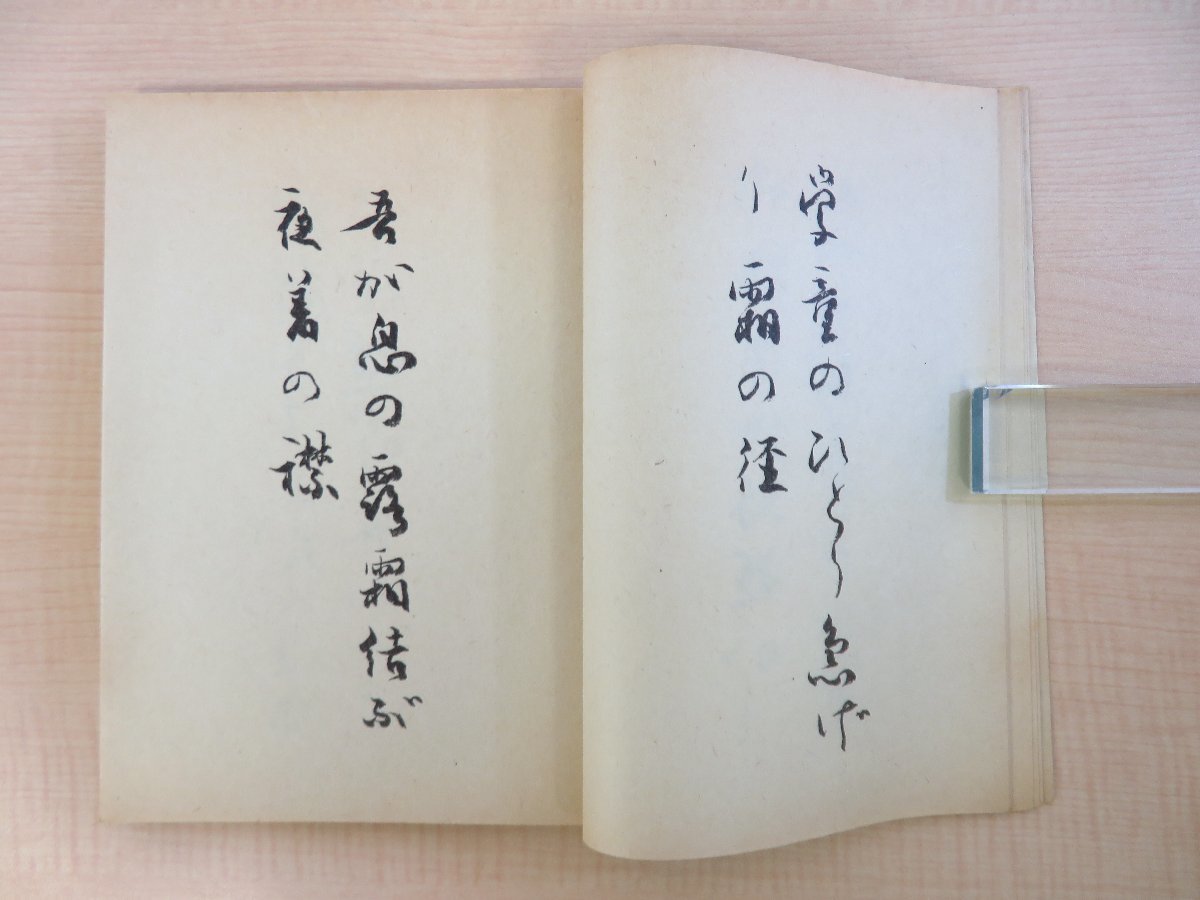 学童のひとり急げ
り霜の径
吾が息の露霜結ぶ
夜着の襟